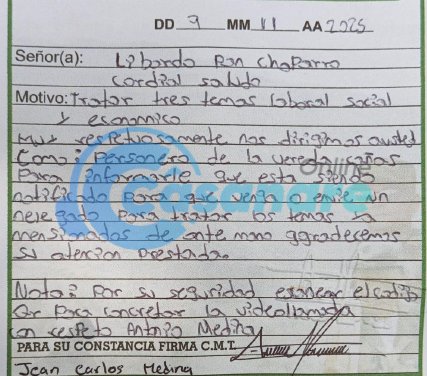 DD 9 MM 11 AA 2025
Señor(a): Libardo Ron Chaparro
Cordial saludo
Motivo: Tratar tres temas laboral social
y economico
Muy respetuosamente nos dirigimos austed
Como: Personero de la vereda cañas
Para informarle que esta siendo
notificado Para que venga o envie un
Delegado Para tratar los temas ya
mensionados de ante mano aggradecemos
su atencion Prestada.
Nota: Por su seguridad escanear el codigo
Qr Para concretar la videollamada
con respeto Antonio Medina
PARA SU CONSTANCIA FIRMA C.M.T.
Jean Carlos Medina
Casanare